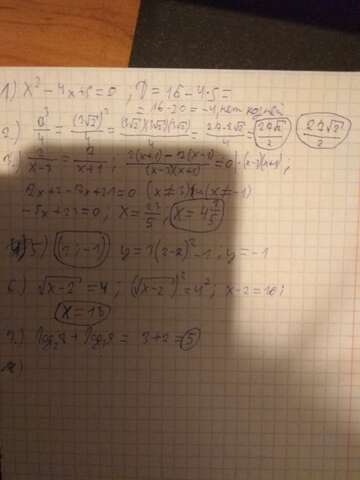 1) x² - 4x + 5 = 0 , D = 16 - 4·5 =
= 16 - 20 = -4, нет корней
2.) a³/4 = (3√2)³/4 = (3√2)(3√2)(3√2)/4 = 27·2√2/4 = 27√2/2 27√2/2
3.) 2/(x-3) = 7/(x+1) ; (2(x+1) - 7(x-3))/((x-3)(x+1)) = 0 | ·(x-3)(x+1) ;
2x+2-7x+21=0 (x≠3) (x≠-1)
-5x+23=0; x = 23/5, x = 4 3/5
5) (2; -1) y = 3(x-2)² - 1 ; y = -1
6) √x-2 = 4 ; (√x-2)² = 4² ; x-2=16;
x = 18
7.) log₂8 + log₃9 = 3+2=5